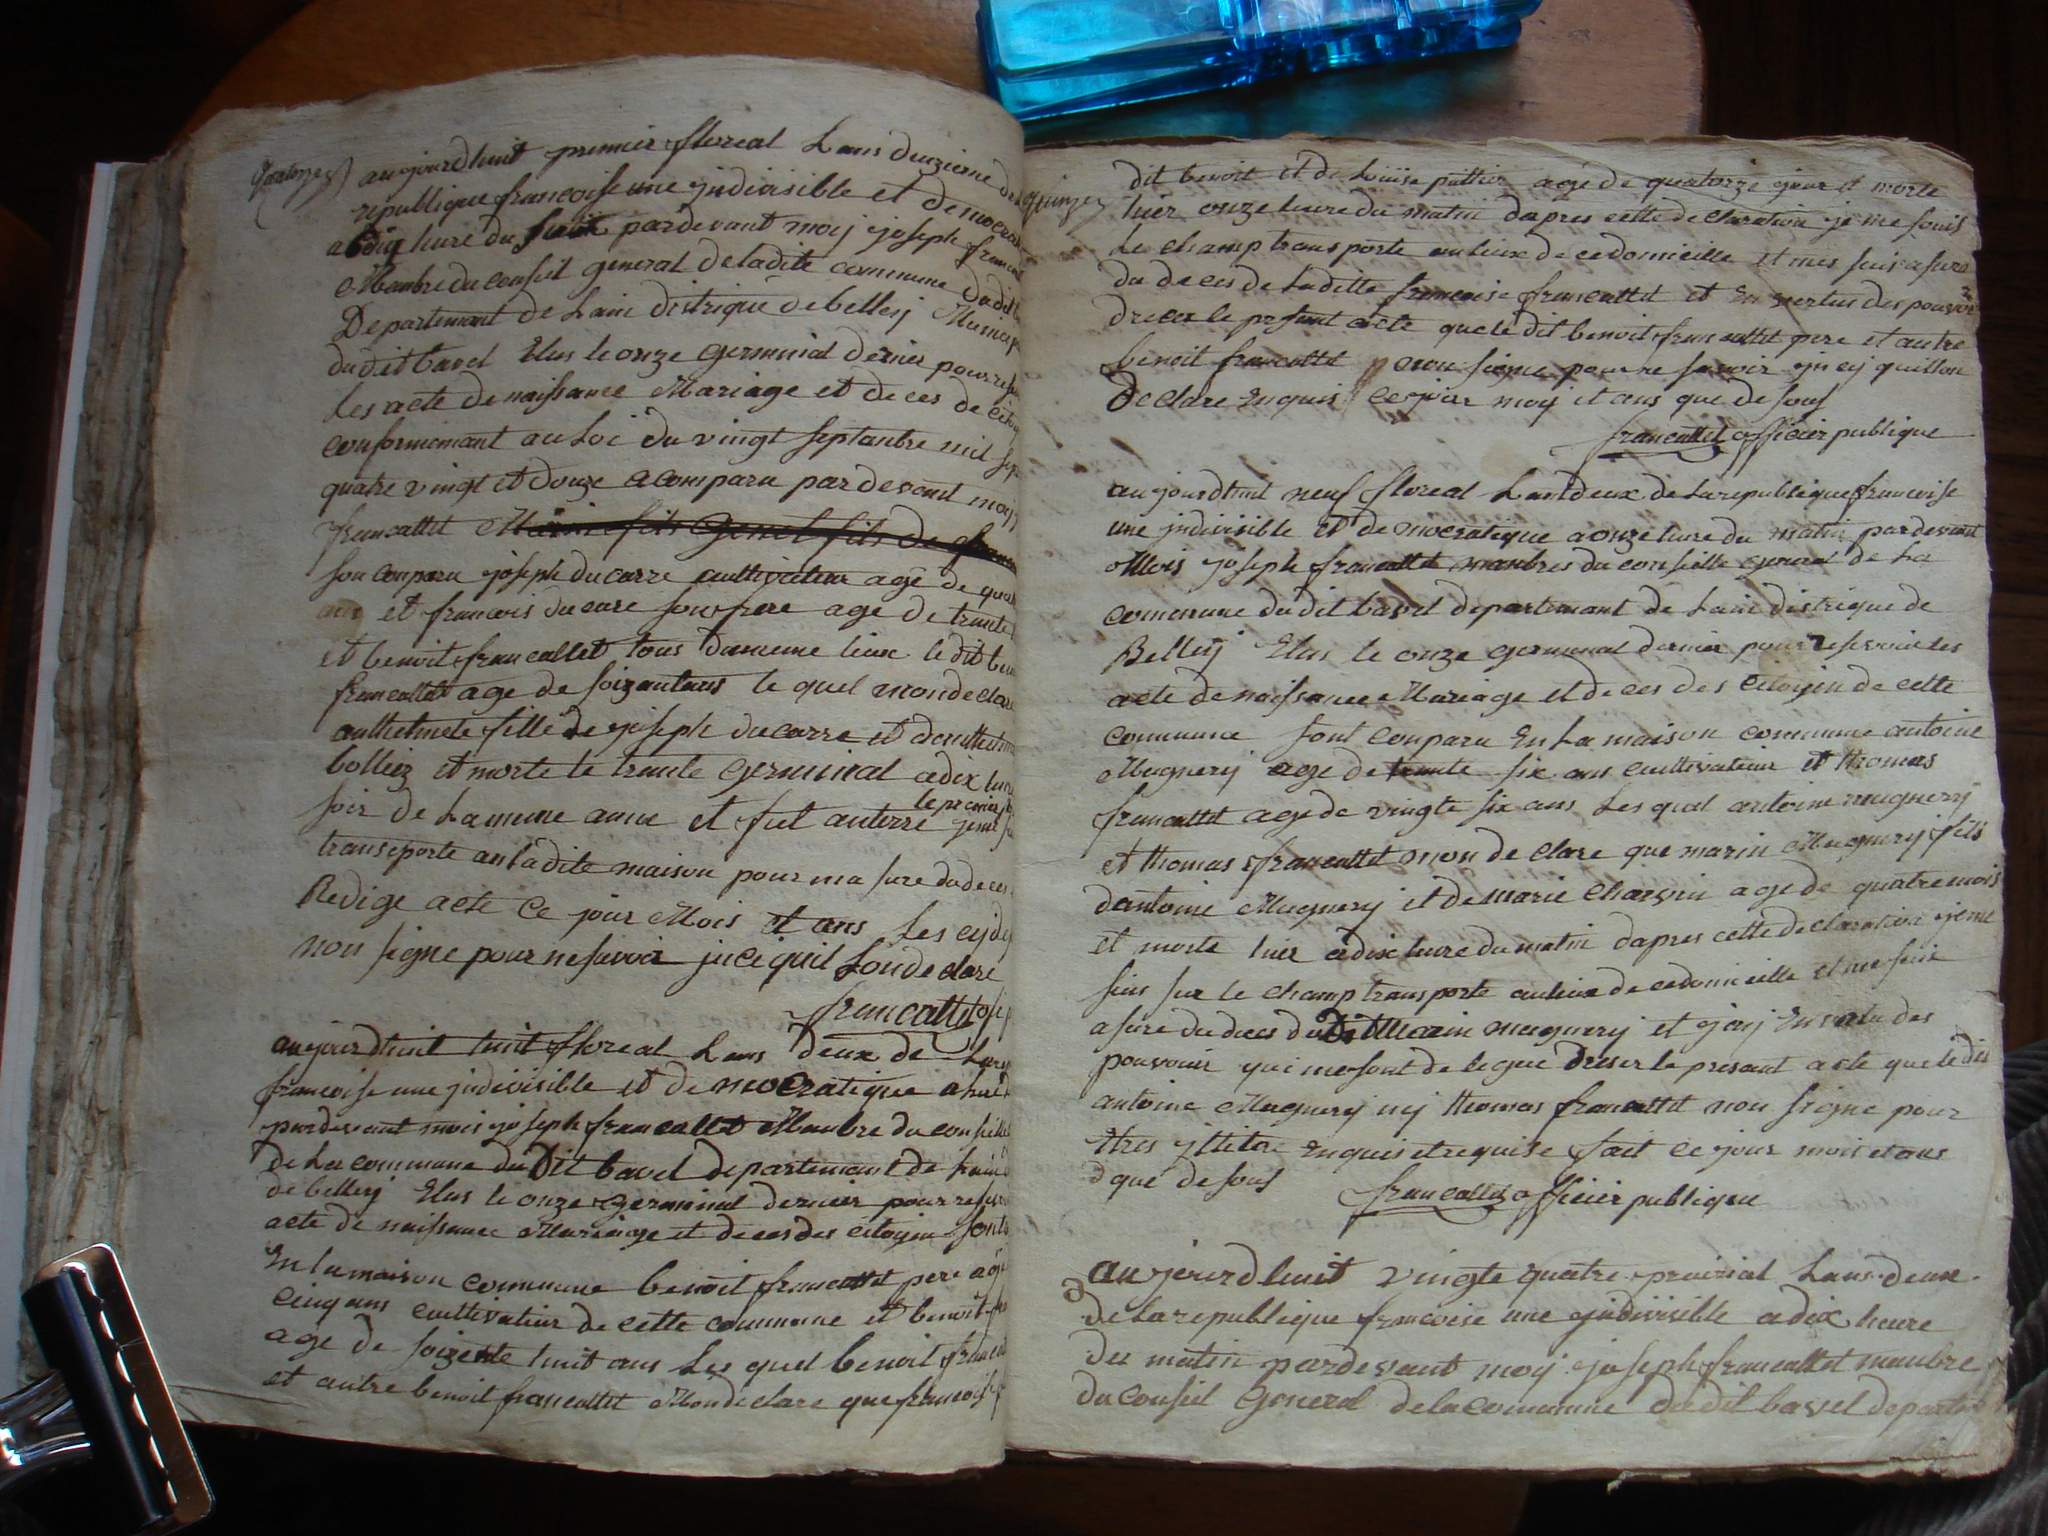 quatorze
aujourdhuit premier floreal Lans deuzieme de la
republique francoise une jndivisible et democra
a dix heure du pardevant moy joseph francat
Manbre du conseil general deladite commune dudit ba
Departemant de Lain distrique debelley Municip
du dit bavel Elus le onze germinal dernier pour res
Les acte de naissance Mariage et deces de cito
conformemant au Loi du vingt septanbre mil sep
quatre vingt et douze a comparu pardevant moy
francattet
son conparu joseph ducarre cultivateur age de quar
ans et francois ducare son frere age de trante
et benoit francattet tous dumeme lieux le dit ben
francattet age de soizantans le quel mondeclare
anthelmete fille de joseph ducarre et danthelme
bolliez et morte le trante germinal a dix heure
soir de Lameme anne et fut anterre le premier jeme su
transporte an ladite maison pour ma sure dudeces
Redige acte Ce jour Mois et ans Les cydi
non signe pour ne savoir jnciquil Londeclare
francattet offi
quinze
aujourdhuit huit floreal Lans deux de Larep
francoise une jndivisible et democratique a huit
pardevant mois joseph francattet Manbre du conseille
de La commune du Dit bavel departemant de Lain
de belley Elus le onze germinal dernier pour reserv
acte de naissance Mariage et deces des citoyin sont
En la maison commune benoit francattet pere age
cinq ans cultivateur de cette commune et benoit fra
age de soizente huit ans Les quel benoit francat
et autre benoit francattet Mondeclare que francoise
dit benoit et de Louise puttier age de quatorze jour et morte
hier onze heure du matin dapres cette declaration je me souis
Le champ transporte au lieux de ce domicille et mes suis asure
du deces de Laditte francoise francattet et En vertus des pouvoir
dreser le present acte que le dit benoit francattet pere et autre
benoit francattet non signe pour ne savoir jncy quillon
Declare Enquis Ce jour moy et ans que de sous
francattet officier publique
aujourdhuit neuf floreal Lans deux de La republique francoise
une jndivisible et democratique a onze heure du matin pardevant
Mois joseph francattet manbres du conseille general de La
commune du dit bavel departemant de Lain distrique de
Belley Elus le onze germinal dernier pour reservoir les
acte de naissance Mariage et deces des citoyin de cette
commune sont conparu En La maison commune antoine
Mugnery age de trante six ans cultivateur et thomas
francattet age de vingte six ans Les qual antoine mugnery
et thomas francattet mon declare que marin Mugnery fils
dantoine Mugnery et de marie charvin age de quatre mois
et morte hier a dix heure du matin dapres cette declaration jeme
suis sur le champ transporte au lieux de ce domicille et me suis
asure du deces du Dit Marin mugnery et jay En vertu des
pouvoir qui me sont delegue dreser le presant acte que le dit
antoine Mugnery ny thomas francattet non signe pour
Etres jlliterè Enquis et requise fait Ce jour mois et ans
d que de sous
francattet officier publique
aujourdhuit vingte quatre prairial Lans deux
de la republique francoise une jndivisible a dix heure
du matin pardevant moy joseph francattet manbre
du conseil general de la comunne du dit bavel departe